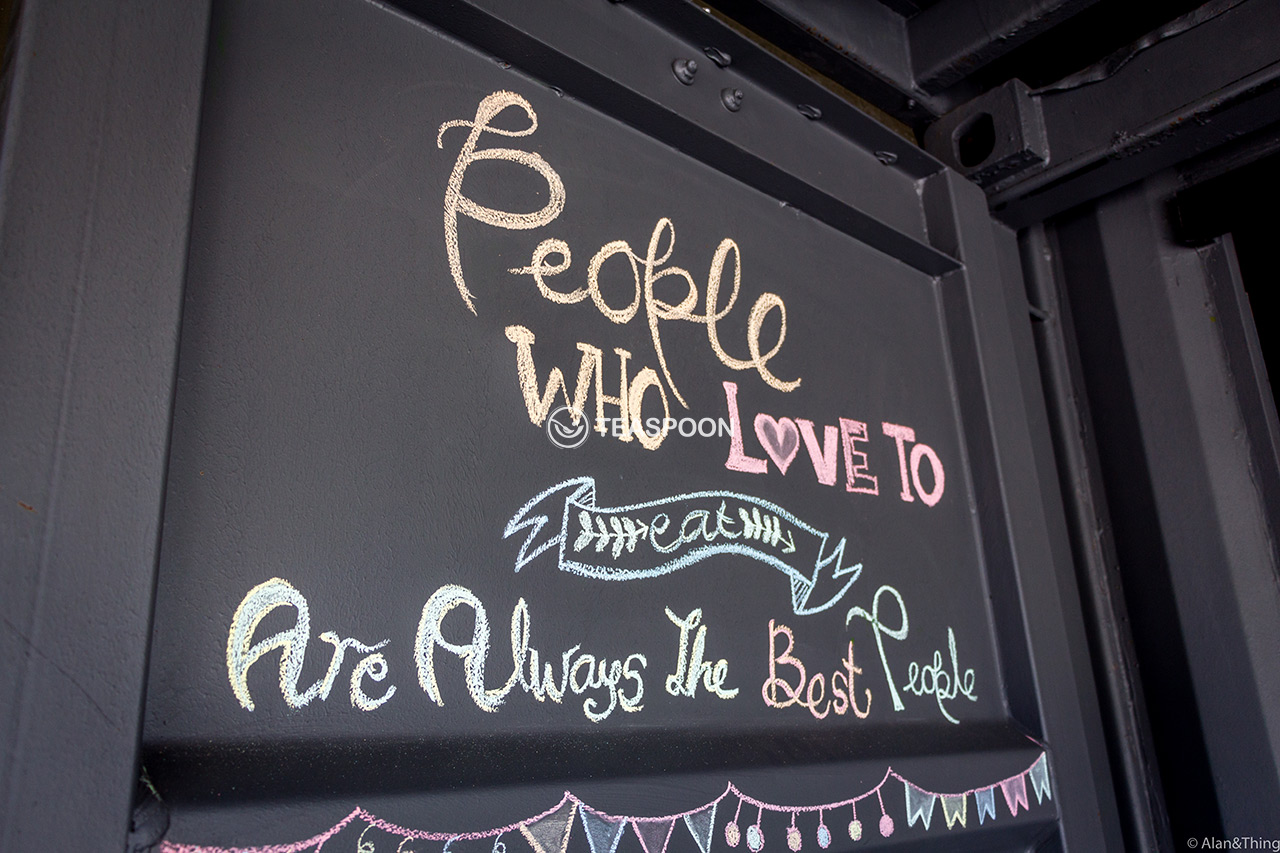 People
WHO LOVE TO
eat
Are Always The Best People
TEASPOON
© Alan&Thing